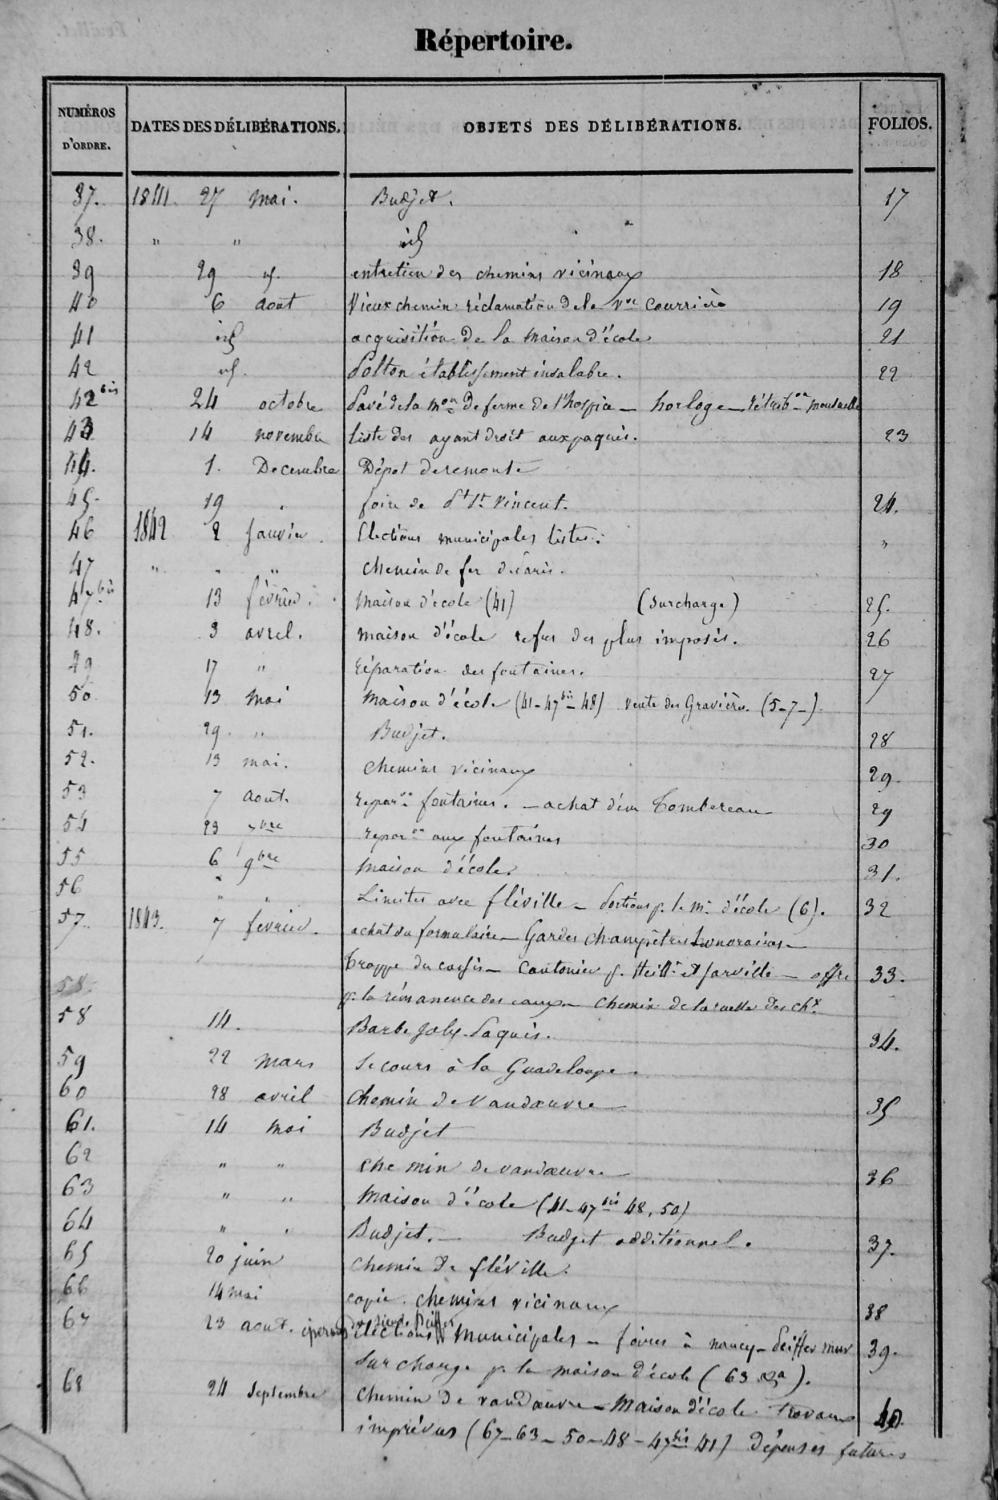 Répertoire.
NUMÉROS D'ORDRE. DATES DES DÉLIBÉRATIONS. OBJETS DES DÉLIBÉRATIONS. FOLIOS.
37. 1841. 27 mai. Budget. 17
38. " " id "
39 29 id. entretien des chemins vicinaux 18
40 6 aout Vieux chemin réclamation de la Vve Courrière 19
41 id acquisition de la maison d'école 21
42 id. établissement insalubre. 22
42 bis 24 octobre Pavé de la mon de ferme de l'hospice — horloge — rétribon mensuelle
43 14 novembre liste des ayant droit aux paquis. 23
44. 1. Decembre Dépot de remonte
45. 19 " foire de St Vincent. 24.
46 1842 2 Janvier. Elections municipales listes. "
47 " " " chemin de fer de Paris.
47 bis 13 février. maison d'école (41) (surcharge) 25.
48. 3 avril. maison d'école refus des plus imposés. 26
49 17 " réparation des fontaines. 27
50 13 mai Maison d'école (41-47bis-48) vente des Gravières (5-7-)
51. 29. " Budget. 28
52. 13 mai. chemins vicinaux 29.
53 7 aout. reparon fontaines. — achat d'un Tombereau 29
54 23 reparon aux fontaines 30
55 6 9bre maison d'école. 31.
56 " " Limites avec fléville — p. la mn d'école (6). 32
57. 1843. 7 fevrier. achat du formulaire — Gardes champêtres honoraires —
Trappe du — Cantonier p. Heill. et Jarville — offre 33.
58.
p. la rémanence des eaux — chemin de la ruelle des chx
58 14. Barbe Joly. Paquis. 34.
59 22 mars Secours à la Guadeloupe.
60 28 avril chemin de Vandœuvre 35
61. 14 mai Budget
62 " " chemin de vandœuvre 36
63 " " Maison d'école (41-47bis 48, 50)
64 " " Budget. — Budget additionnel. 37.
65 20 juin chemin de fléville.
66 14 mai copie. chemins vicinaux 38
67 23 aout. Elections Municipales — foires à nancy — Peiffer mur 39.
Surcharge p. la maison d'école (63 &a).
68 24 Septembre Chemin de vandœuvre — Maison d'école travaux 40.
imprévus (67-63-50-48-47bis 41) Dépenses futures